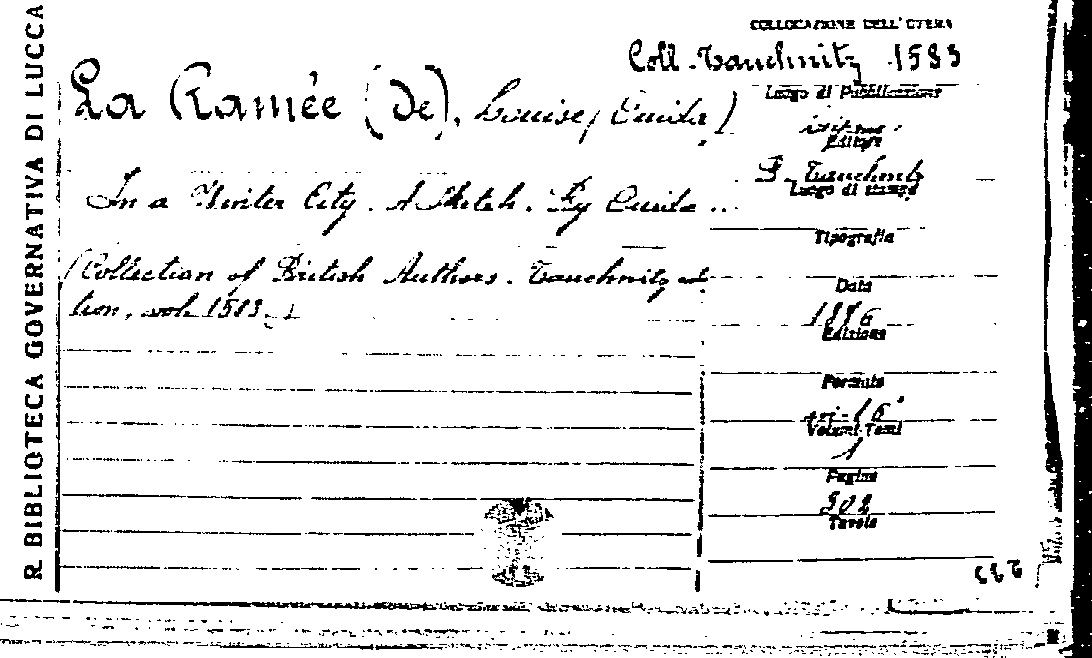 R. BIBLIOTECA GOVERNATIVA DI LUCCA
COLLOCAZIONE DELL'OPERA
Coll. Tauchnitz 1583
La Ramée (De), Louise (Ouida)
In a Winter City. A Sketch. By Ouida ..
(Collection of British Authors. Tauchnitz edi-
tion, vol. 1583.)
Luogo di Pubblicazione
Editore
B. Tauchnitz
Luogo di stampa
Tipografia
Data
1876
Edizione
Formato
in-16°
Volumi-Tomi
1
Pagine
302
Tavole